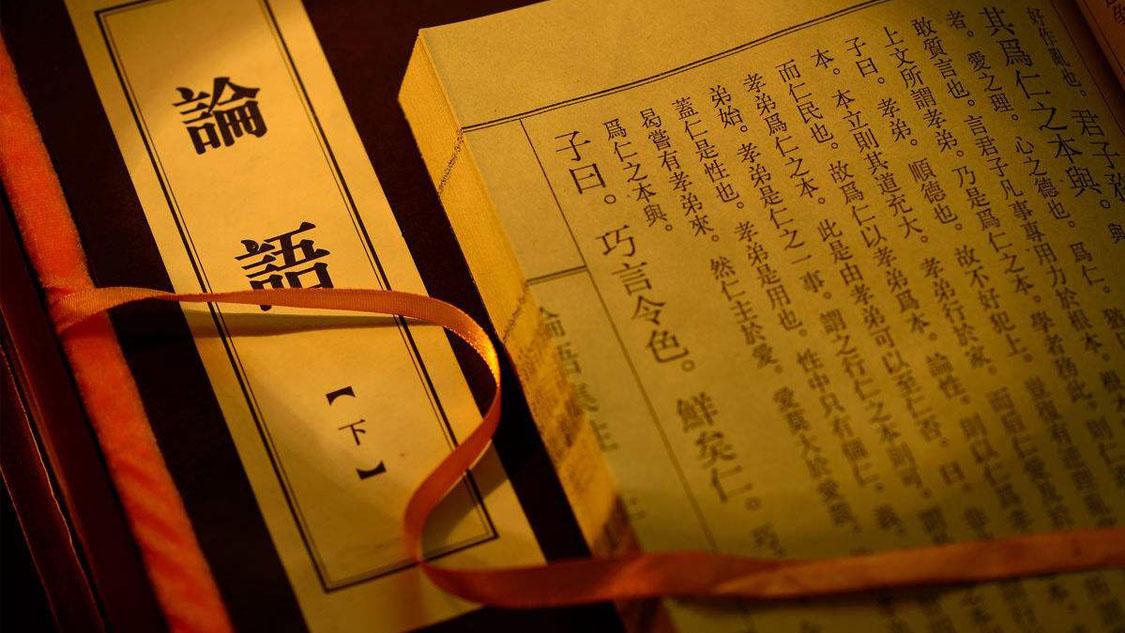 論語
【下】
好作亂也。君子務
其爲仁之本與。與
者。愛之理。心之德也。爲仁。猶
敢質言也。言君子凡事專用力於根本。根本
上文所謂孝弟。乃是爲仁之本。學者務此。則仁
子曰。孝弟。順德也。故不好犯上。豈復有逆理亂
本。本立則其道充大。孝弟行於家。而後仁愛
而仁民也。故爲仁以孝弟爲本。論性。則以仁爲孝
孝弟爲仁之本。此是由孝弟可以至仁否。曰。非
弟始。孝弟是仁之一事。謂之行仁之本則可。謂
蓋仁是性也。孝弟是用也。性中只有個仁。義。
曷嘗有孝弟來。然仁主於愛。愛莫大於愛親。
爲仁之本與。
子曰。巧言令色。鮮矣仁。巧
論語集註